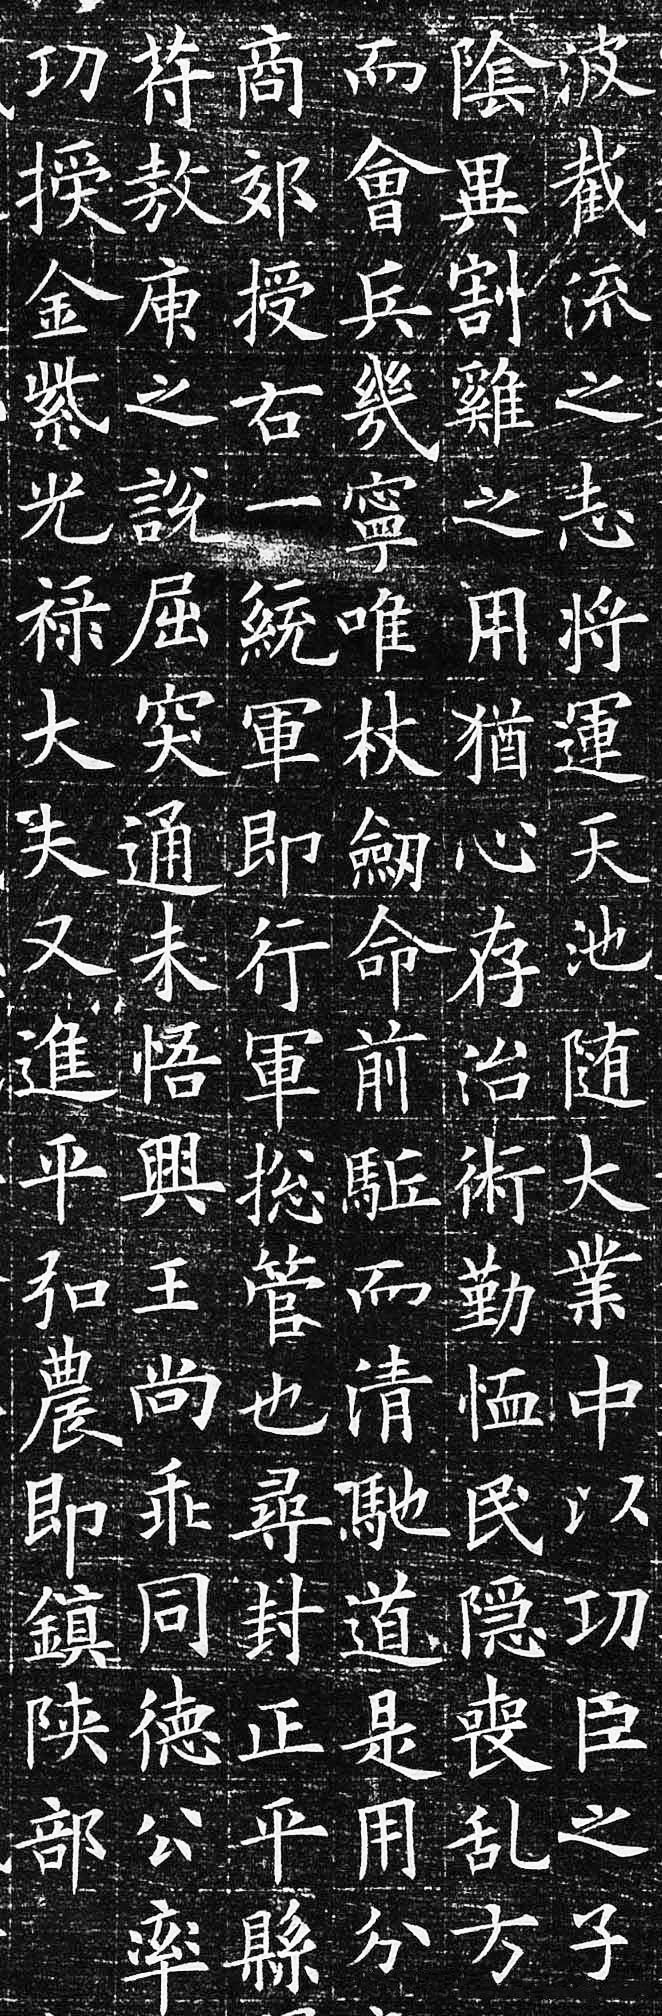 波截流之志將運天池随大業中以功臣之子
隂異割雞之用猶心存治術勤恤民隠喪乱方
而會兵幾寧唯杖劒命前駈而清馳道是用分
商郊授右一統軍即行軍揔管也尋封正平縣
苻敖庾之說屈突通未悟興王尚乖同德公率
功授金紫光禄大夫又進平弘農即鎮陝部